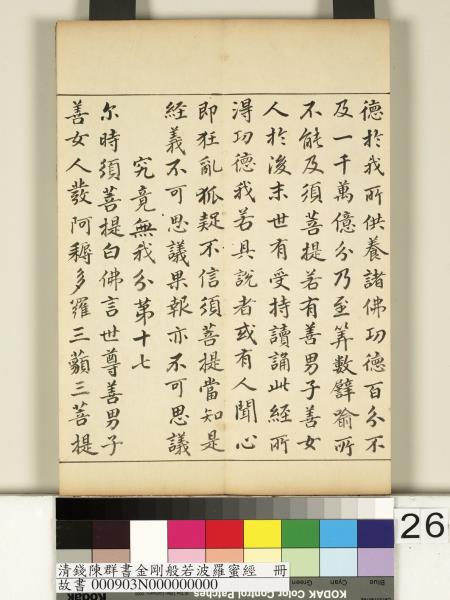 德於我所供養諸佛功德百分不
及一千萬億分乃至筭數譬喻所
不能及須菩提若有善男子善女
人於後末世有受持讀誦此經所
得功德我若具說者或有人聞心
即狂亂狐疑不信須菩提當知是
經義不可思議果報亦不可思議
究竟無我分第十七
尔時須菩提白佛言世尊善男子
善女人發阿耨多羅三藐三菩提
26
Blue Cyan Green
清錢陳群書金剛般若波羅蜜經 冊
故書 000903N000000000
KODAK Color Control Patches
Kodak